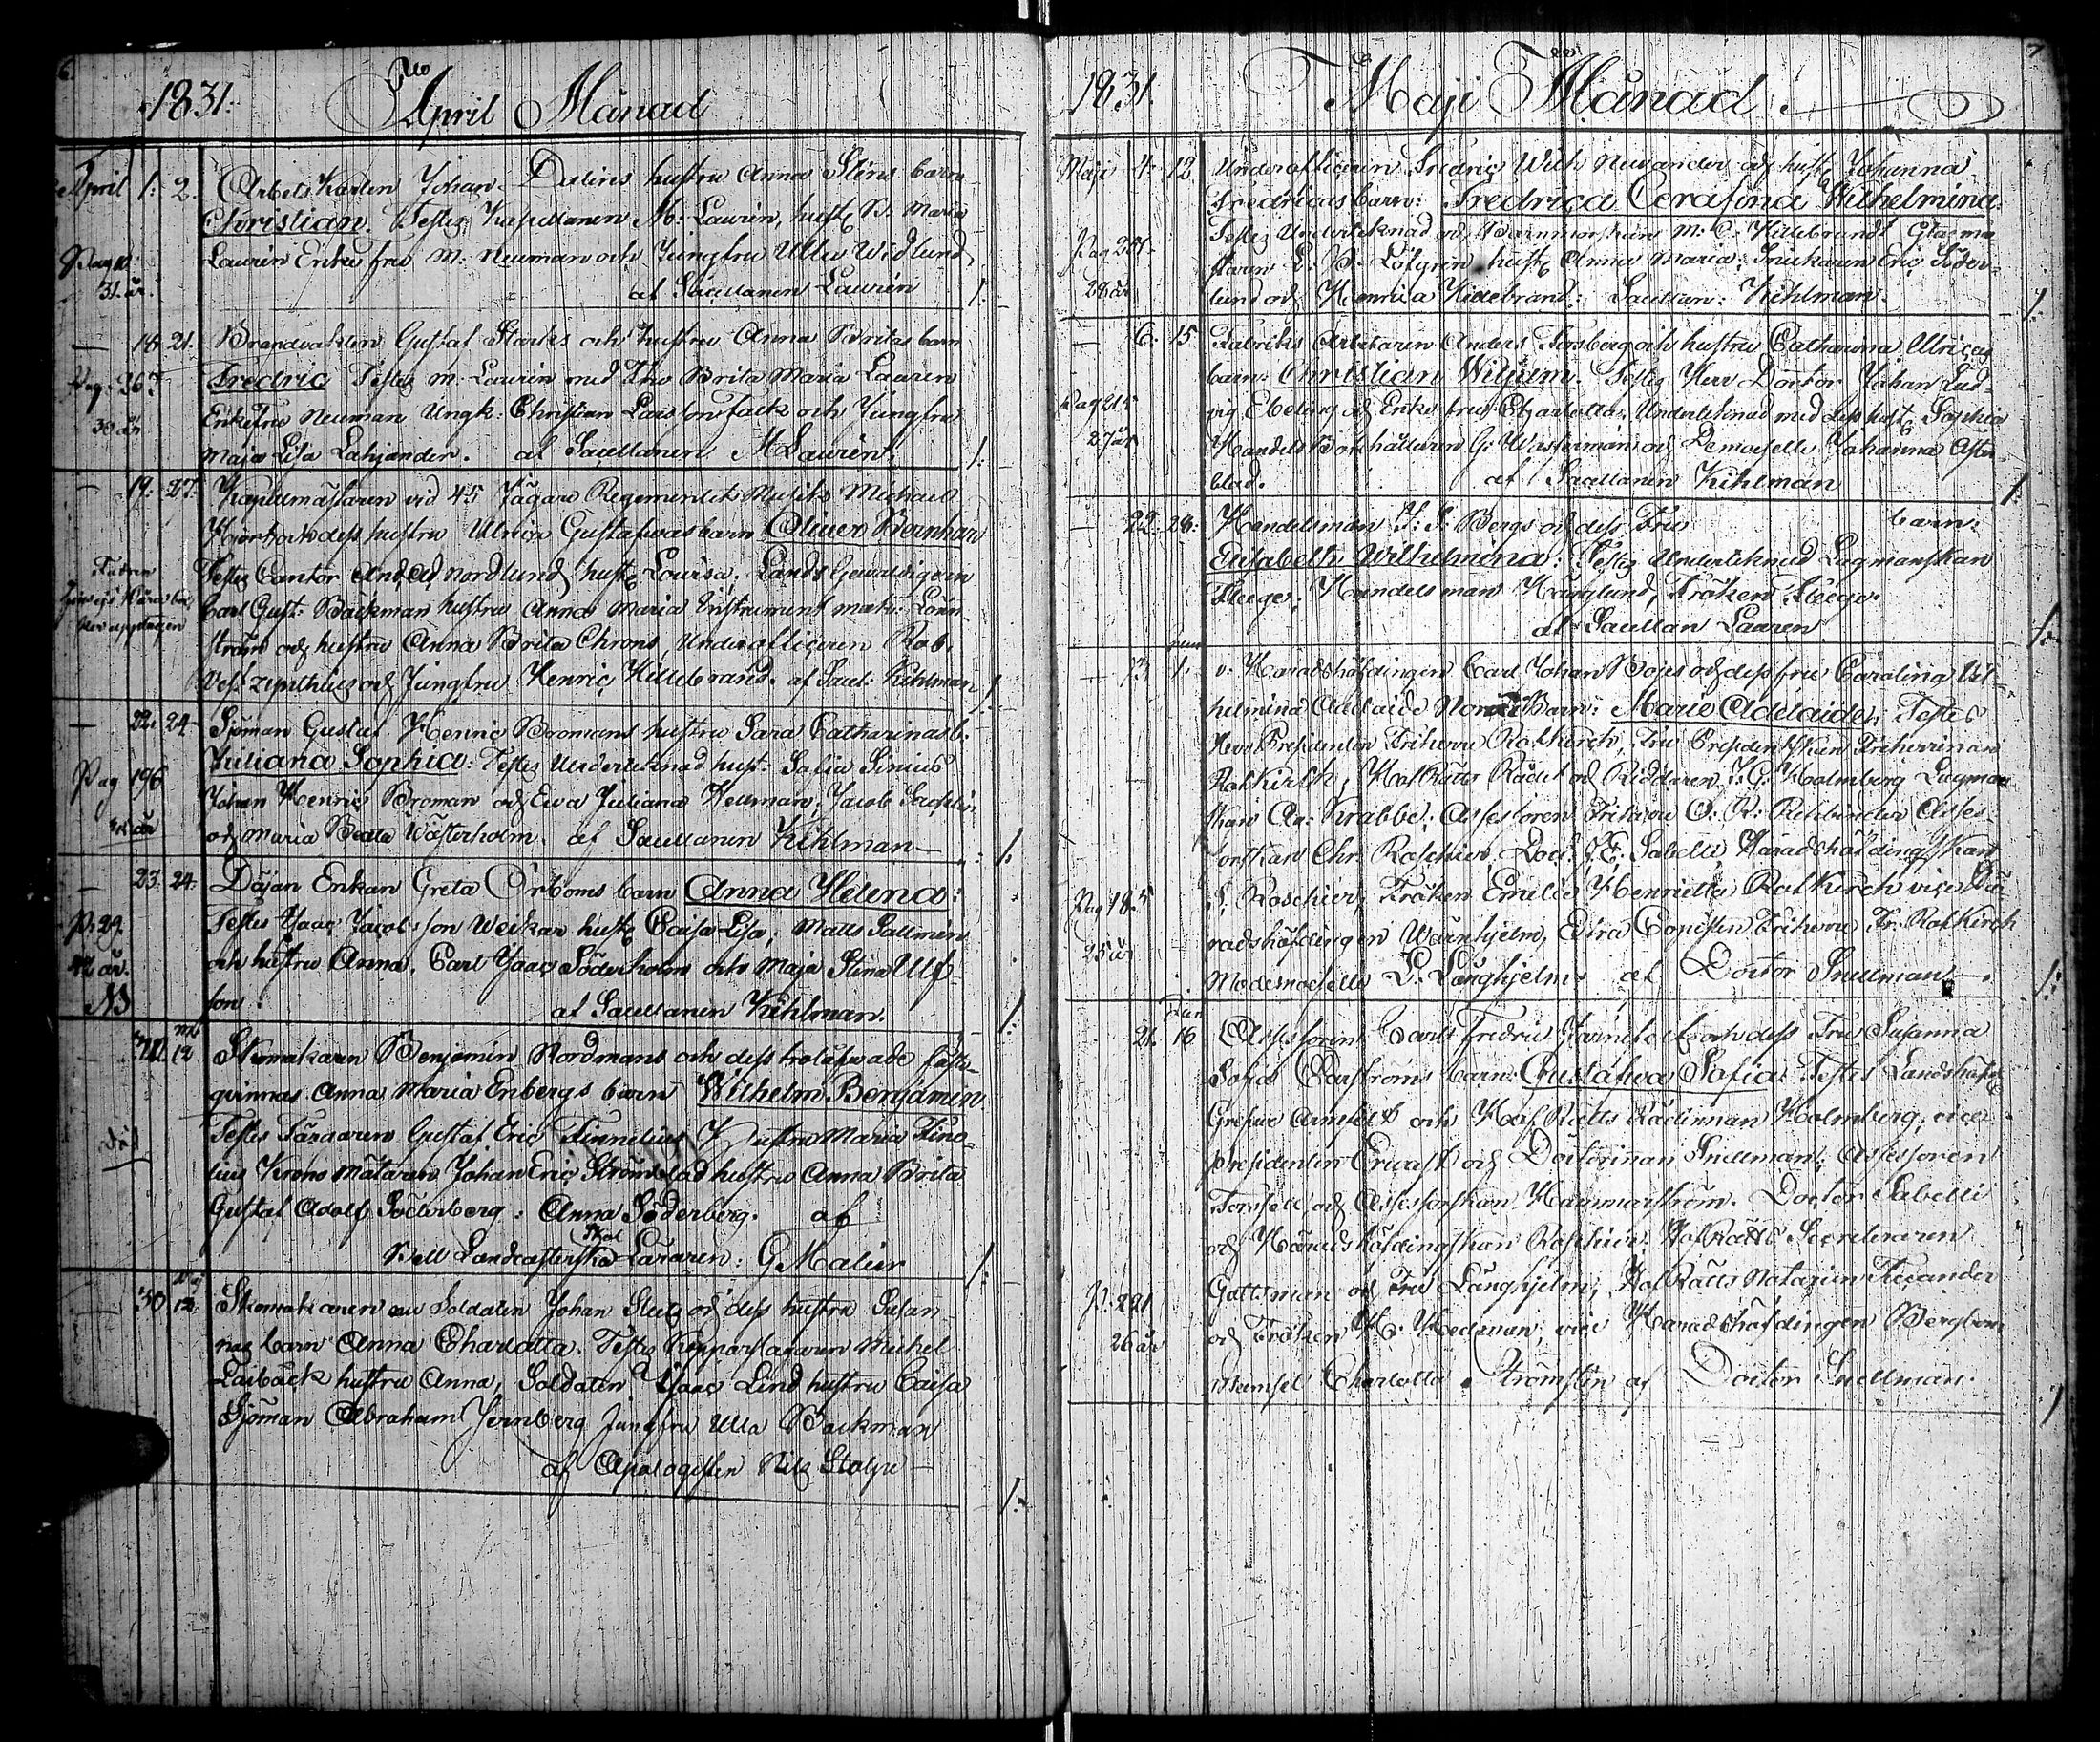 6.
1831. April Månad
April 1: 2. Arbets Karlen Johan Dalins hustru Anna Stins barn
Christian. Testes Kapellanen M: Laurin, hust: B: Maria
Pag 10 Laurin Enke fru M: Neuman och Jungfru Ulla Widlund
31. år. af Sacellanen Laurin
— 18 21. Brandvakten Gustaf Starks och hustru Anna Britas barn
Pag. 267 Fredric Testes M: Laurin med Fru Brita Maria Laurin
30 år Enkefru Neuman Ungk: Christian Larsson och Jungfru
Maja Lisa Lahjander. af Sacellanen M Laurin.
— 19. 27. Kapellmästaren vid 45 Jägare Regementets Musik Michael
och dess hustru Ulrica Gustafvas barn Oliver Bernhard
Testes Cantor And. Ad. Nordlund, hust: Lovisa; Lands Gewaldigern
Carl Gust: Bäckman hustru Anna Maria Instrument mak: Lönn
ström och hustru Anna Brita Chrons, Underofficeren Rob.
och Jungfru Henric: Hillebrand. af Sacel: Kihlman
— 22. 24 Sjöman Gustaf Henric Bromans hustru Sara Catharinas b.
Juliana Sophia: Testes Undertecknad hust: Sofia Sinius
Pag 196 Johan Henric Broman och Eva Juliana Hellman; Jacob
år och Maria Beata Wästerholm. af Sacellanen Kihlman —
— 23. 24. Enkan Greta Örboms barn Anna Helena:
P. 29. Testes Isaac Jacobsson Weikar hust: Caisa Lisa; Matts Sallmén
42 år. och hustru Anna. Carl Isaac Söderholm och Maja Stina Ulf-
NB son. af Sacellanen Kihlman.
12 Skomakaren Benjamin Nordmans och dess trolåfwade fäste-
qvinnas Anna Maria Enbergs barn Wilhelm Benjamin
död Testes Färgaren Gustaf Eric Finnelius Hustru Maria Fine-
lius Krono Mätaren Johan Eric Strömstad hustru Anna Brita
Gustaf Adolf Söderberg: Anna Söderberg. af
Bell Lancasterska Skol Läraren: G Malin
— 30 12. Skomakaren Soldaten Johan och dess hustru Susan-
nas barn Anna Charlotta. Testes Kopparslagaren Michel
Laibäck hustru Anna, Soldaten Isaac Lind hustru Caisa
Sjöman Abraham Jernberg Jungfru Ulla Backman
af Apologisten Nils Stolpe —
7
1831. Maji Månad
Maji 4: 12 Underofficeren Fredric Wilh och hust: Johanna
Fredricas barn: Fredrica Cerafina Wilhelmina.
Testes Undertecknad och Barnmorskan M: C: Hillebrandt Glasmä
Pag 251 staren L: N: Löfgren hust: Anna Maria; Snickaren Eric Söder-
28 år lund och Henrica Hillebrand: Sacellan: Kihlman.
— 6: 15 Fabriks Arbetaren Anders Forsberg och hustru Catharina Ulricas
barn: Christian Wiljam. Testes Herr Doctor Johan Lud-
Pag 215 vig Ebeling och Enke fru Charlotta; Undertecknad med dess hust: Sophia
27 år Handels Bokhållaren G: Westerman och Demoiselle Johanna After
blad. af Sacellanen Kihlman
— 22: 28: Handelsman J: J: Bergs och dess Fru barn:
Elisabeth Wilhelmina: Testes Undertecknad Lagmanskan
Fleege; Handelsman Häggblund, Fröken Fleege
af Sacellan Lauren
— 13 1. v: Häradshöfdingen Carl Johan Bojes och dess fru Carolina Wil-
helmina Adelaide Barn: Marie Adelaide: Testes
Herr Presidenten Friherre Rotkirch, Fru Presidentskan Friherrinnan
Rotkirch; HofRätts Rådet och Riddaren J. G: Holmberg Lagman
skan An: Krabbe; Assessoren Friherre O: R: Rehbinder Asses-
sorskan Chr. Roschier. Doct: J. E. Sabelli Häradshöfdingskan
Pag 185 S. Roschier, Fröken Emelie Henriette Rotkirch vice Hä
25 år radshöfdingen Wärnhjelm, Extra Copisten Friherre Fr: Rotkirch
Mademoiselle L: Långhjelm af Doctor Snellman.
Jun
21. 16 Assessoren Carl Fredric och dess Fru Susanna
Sofia barn: Gustafva Sofia. Testes Landshöfd:
Grefve Armfelt och Hof Rätts Rådinnan Holmberg, vice
presidenten Ervast och Doctorinnan Snellman, Assessoren
Forssell och Assessorskan Hammarström. Doctor Sabelli
och Häradshöfdingskan Roschier. HofRätts Secreteraren
P. 221 Gottsman och Fru Långhjelm; Hof Rätts Notarien
26 år och Fröken H: Hedman, vice Häradshöfdingen Bergbom
Mamsel Charlotta Strömsten af Doctor Snellman.